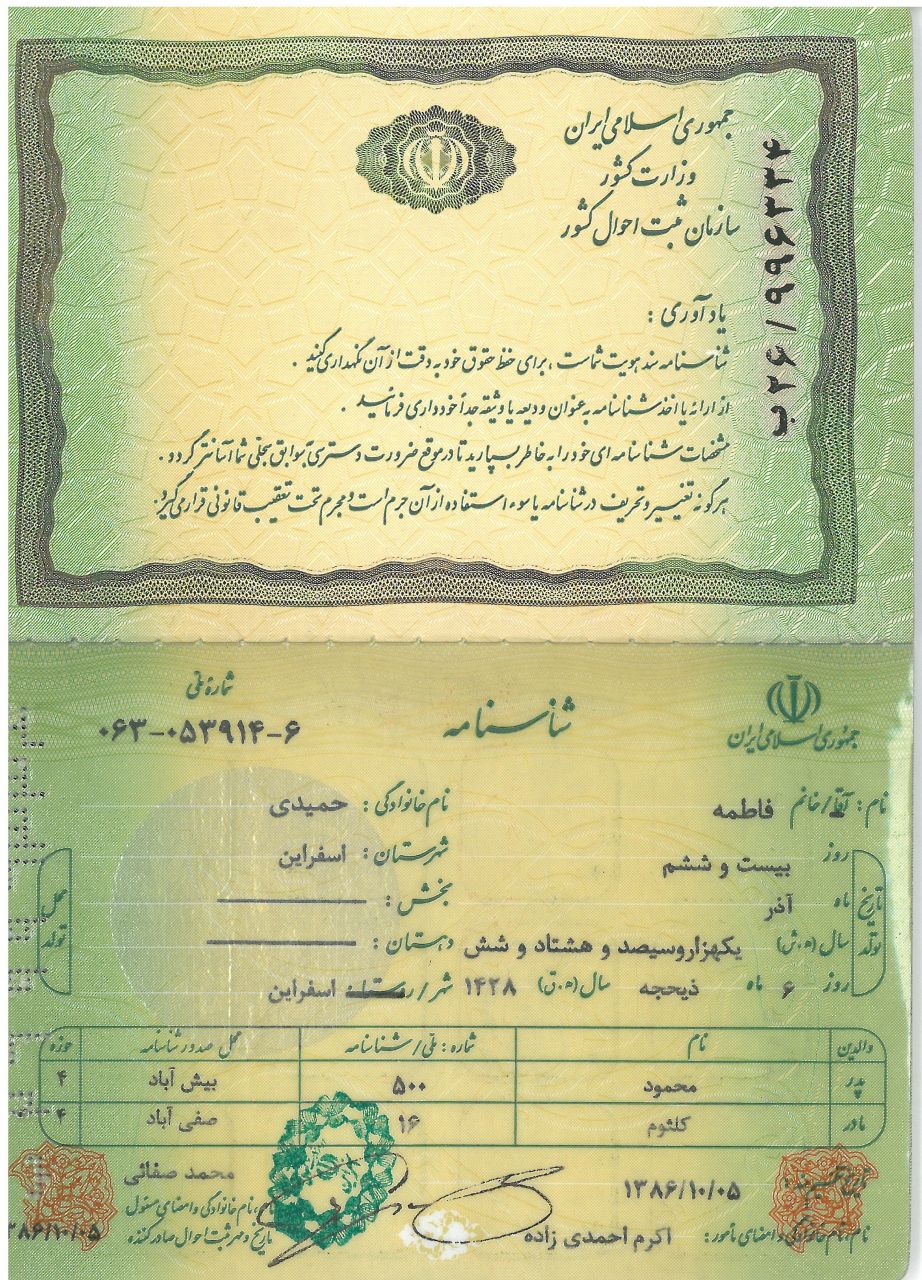 جمهوری اسلامی ایران
وزارت کشور
سازمان ثبت احوال کشور
ب۲۶/۹۹۶۳۳۴
یادآوری :
شناسنامه سند هویت شماست ، برای حفظ حقوق خود به دقت از آن نگهداری کنید .
از ارائه یا اخذ شناسنامه به عنوان ودیعه یا وثیقه جداً خودداری فرمائید .
مشخصات شناسنامه ای خود را به خاطر بسپارید تا در موقع ضرورت دسترسی به سوابق سجلی شما آسانتر گردد .
هرگونه تغییر و تحریف در شناسنامه یا سوء استفاده از آن جرم است و مجرم تحت تعقیب قانونی قرار می گیرد.
جمهوری اسلامی ایران
شناسنامه
شماره ملی
۰۶۳-۰۵۳۹۱۴-۶
نام : آقا/خانم فاطمه نام خانوادگی : حمیدی
تاریخ تولد
روز بیست و ششم
ماه آذر
سال (ه.ش) یکهزاروسیصد و هشتاد و شش
روز ۶ ماه ذیحجه سال (ه.ق) ۱۴۲۸
محل تولد
شهرستان : اسفراین
بخش :
دهستان :
شهر/روستا : اسفراین
والدین نام شماره : ملی/شناسنامه محل صدور شناسنامه حوزه
پدر محمود ۵۰۰ بیش آباد ۴
مادر کلثوم ۱۶ صفی آباد ۴
۱۳۸۶/۱۰/۰۵
نام، نام خانوادگی و امضای مأمور : اکرم احمدی زاده
محمد صفائی
نام، نام خانوادگی و امضای مسئول
تاریخ و مهر ثبت احوال صادرکننده
۱۳۸۶/۱۰/۰۵